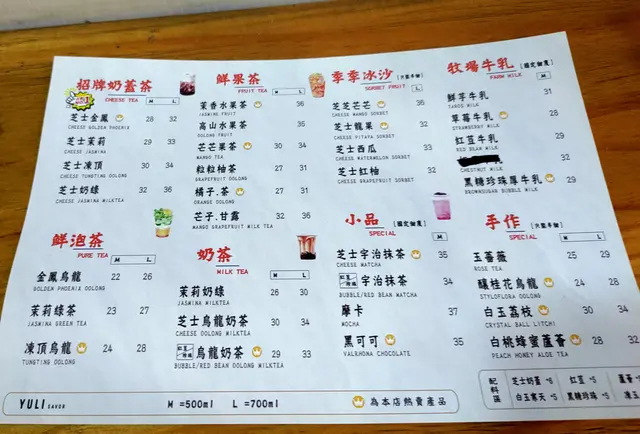 招牌奶蓋茶
CHEESE TEA M L
芝士金鳳 28 32
CHEESE GOLDEN PHOENIX
芝士茉莉 29 33
CHEESE JASMINA
芝士凍頂 30 34
CHEESE TUNGTING OOLONG
芝士奶綠 32 36
CHEESE JASMINA MILKTEA
鮮泡茶
PURE TEA M L
金鳳烏龍 22 26
GOLDEN PHOENIX OOLONG
茉莉綠茶 23 27
JASMINA GREEN TEA
凍頂烏龍 24 28
TUNGTING OOLONG
鮮果茶
FRUIT TEA M L
茉香水果茶 36
JASMINE FRUIT
高山水果茶 35
OOLONG FRUIT
芒芒果茶 30 34
MANGO TEA
粒粒柚茶 27 31
GRAPEFRUIT OOLONG
橘子.茶 27 31
ORANGE OOLONG
芒子.甘露 32 36
MANGO GRAPEFRUIT MILK TEA
奶茶
MILK TEA M L
茉莉奶綠 26 30
JASMINA MILKTEA
芝士烏龍奶茶 30 34
CHEESE OOLONG MILKTEA
烏龍奶茶 29 33
BUBBLE/RED BEAN OOLONG MILKTEA
季季冰沙
SORBET FRUIT L
芝芝芒芒 36
CHEESE MANGO SORBET
芝士龍果 32
CHEESE PITAYA SORBET
芝士西瓜 33
CHEESE WATERMELON SORBET
芝士紅柚 34
CHEESE GRAPEFRUIT SORBET
小品
SPECIAL M
芝士宇治抹茶 35
CHEESE MATCHA
宇治抹茶 34
BUBBLE/RED BEAN MATCHA
摩卡 37
MOCHA
黑可可 35
VALRHONA CHOCOLATE
牧場牛乳
FARM MILK M
鮮芋牛乳 31
TAROS MILK
草莓牛乳 28
STRAWBERRY MILK
紅荳牛乳 29
RED BEAN MILK
32
CHESTNUT MILK
黑糖珍珠厚牛乳 29
BROWNSUGAR BUBBLE MILK
手作
SPECIAL M L
玉薔薇 25 29
ROSE TEA
釀桂花烏龍 24 28
STYLOFLORA OOLONG
白玉荔枝 30 34
CRYSTAL BALL LITCHI
白桃蜂蜜蘆薈 28 32
PEACH HONEY ALOE TEA
配料區
芝士奶蓋 +5 紅荳 +5 蘆薈
白玉寒天 +5 黑糖珍珠 +5
YULI SAVOR M =500ml L =700ml 為本店熱賣產品